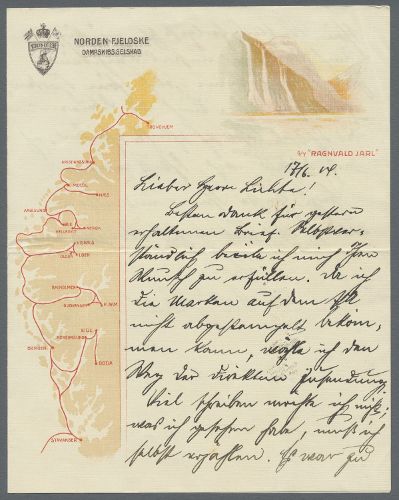 NORDENFJELDSKE
DAMPSKIBSSELSKAB
TRONDHJEM
KRISTIANSSUND
MOLDE
NÆS
AALESUND
HELLESYLT
MEROK
OLDEN
LOEN
BALHOLMEN
GUDVANGEN
EIDE
BERGEN
ODDA
STAVANGER
S/S "RAGNVALD JARL"
17/6. 04.
Lieber Herr Liebte!
Besten Dank für gestern
erhaltenen Brief. Selbstver-
ständlich beeile ich mich Ihren
Wunsch zu erfüllen. Da ich
die Marken auf dem
nicht abgestempelt bekom-
men kann, wähle ich den
Weg der direkten Zusendung.
Viel schreiben möchte ich nicht,
was ich gesehen habe, muß ich
selbst erzählen. Es war zu